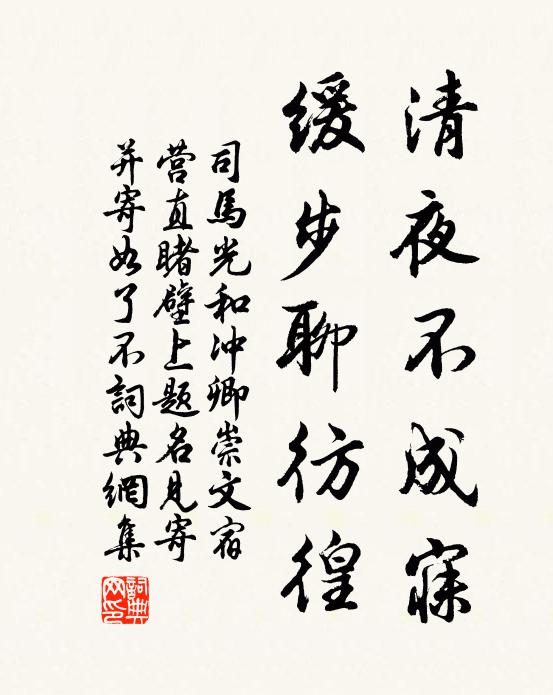 清夜不成寐
缓步聊彷徨
司馬光和冲卿崇文宿
营直睹壁上题名见寄
并寄如了不詞典網集
詞典
网印